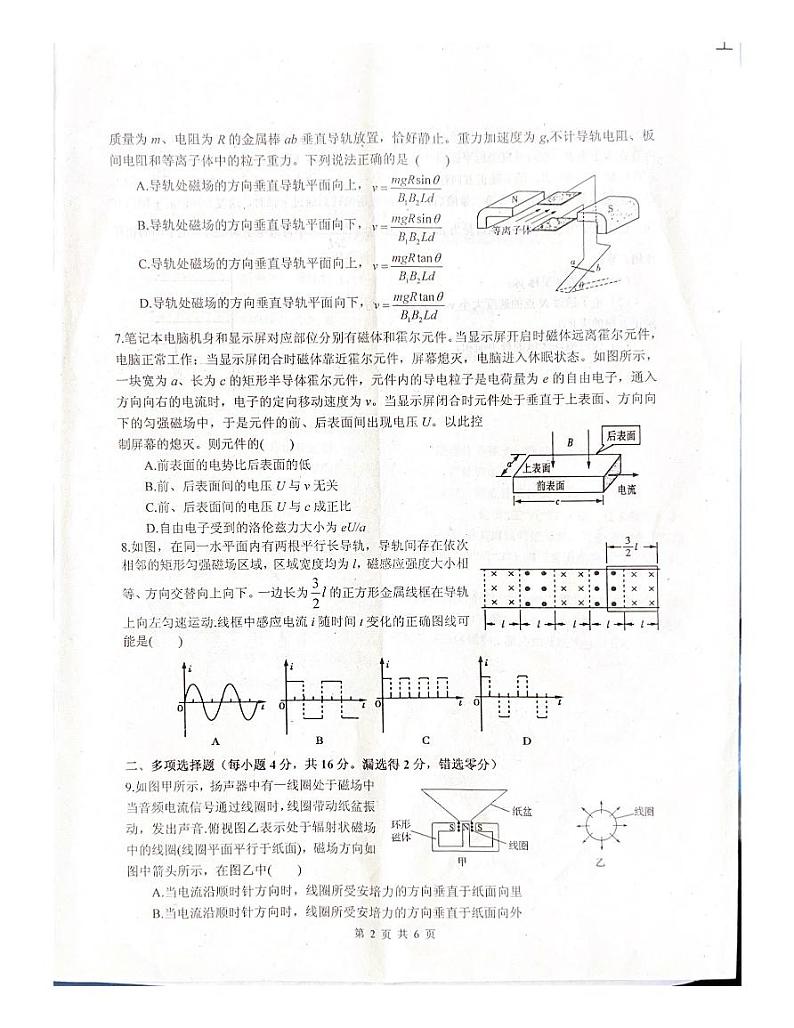 质量为 m、电阻为 R 的金属棒 ab 垂直导轨放置，恰好静止。重力加速度为 g,不计导轨电阻、板
间电阻和等离子体中的粒子重力。下列说法正确的是（　　）
A.导轨处磁场的方向垂直导轨平面向上，v = mgRsinθ / B₁B₂Ld
B.导轨处磁场的方向垂直导轨平面向下，v = mgRsinθ / B₁B₂Ld
C.导轨处磁场的方向垂直导轨平面向上，v = mgRtanθ / B₁B₂Ld
D.导轨处磁场的方向垂直导轨平面向下，v = mgRtanθ / B₁B₂Ld
N
S
等离子体
a
b
θ
7.笔记本电脑机身和显示屏对应部位分别有磁体和霍尔元件。当显示屏开启时磁体远离霍尔元件，
电脑正常工作；当显示屏闭合时磁体靠近霍尔元件，屏幕熄灭，电脑进入休眠状态。如图所示，
一块宽为 a、长为 c 的矩形半导体霍尔元件，元件内的导电粒子是电荷量为 e 的自由电子，通入
方向向右的电流时，电子的定向移动速度为 v。当显示屏闭合时元件处于垂直于上表面、方向向
下的匀强磁场中，于是元件的前、后表面间出现电压 U。以此控
制屏幕的熄灭。则元件的(　　)
A.前表面的电势比后表面的低
B.前、后表面间的电压 U 与 v 无关
C.前、后表面间的电压 U 与 c 成正比
D.自由电子受到的洛伦兹力大小为 eU/a
B
后表面
a
上表面
前表面
电流
c
8.如图，在同一水平面内有两根平行长导轨，导轨间存在依次
相邻的矩形匀强磁场区域，区域宽度均为 l，磁感应强度大小相
等、方向交替向上向下。一边长为 3/2 l 的正方形金属线框在导轨
上向左匀速运动.线框中感应电流 i 随时间 t 变化的正确图线可
能是(　　)
3/2 l
l l l l l
i
0
t
A
i
0
t
B
i
0
t
C
i
0
t
D
二、多项选择题（每小题 4 分，共 16 分。漏选得 2 分，错选零分）
9.如图甲所示，扬声器中有一线圈处于磁场中
当音频电流信号通过线圈时,线圈带动纸盆振
动，发出声音.俯视图乙表示处于辐射状磁场
中的线圈(线圈平面平行于纸面)，磁场方向如
图中箭头所示，在图乙中(　　)
纸盆
环形
磁体
S N S
线圈
甲
线圈
乙
A.当电流沿顺时针方向时，线圈所受安培力的方向垂直于纸面向里
B.当电流沿顺时针方向时，线圈所受安培力的方向垂直于纸面向外
第 2 页 共 6 页